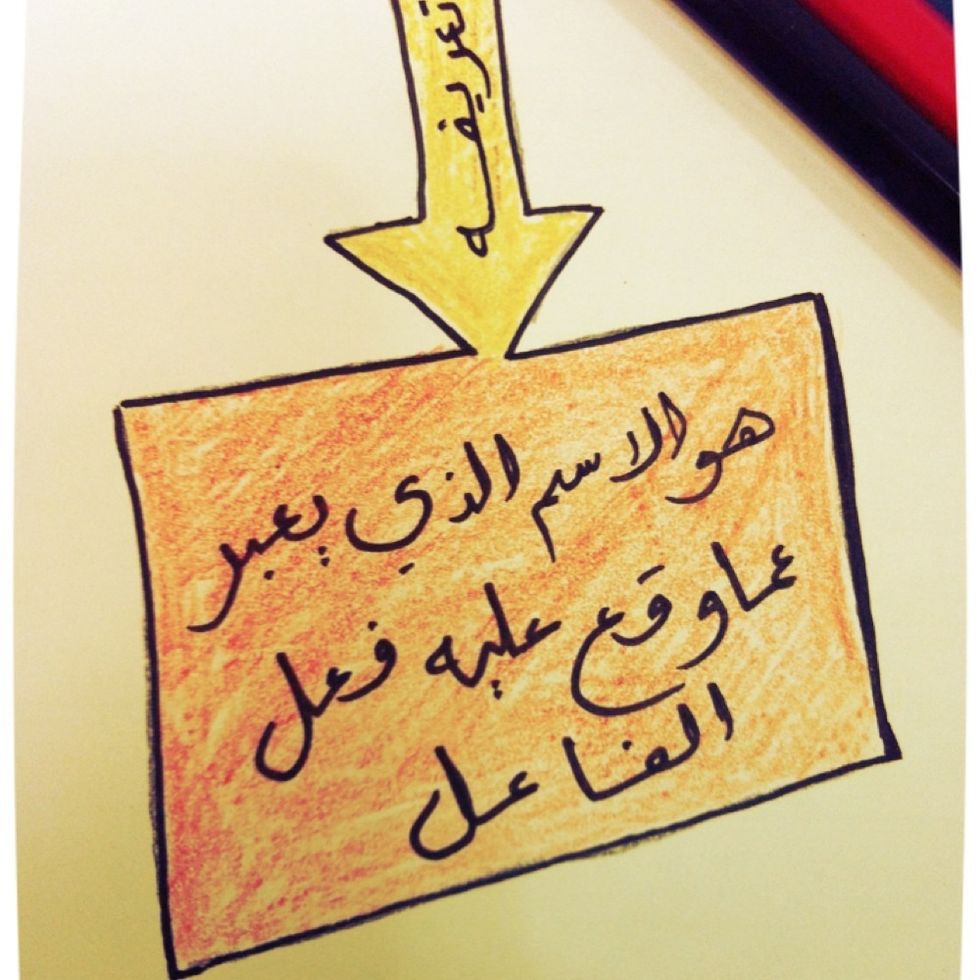 تعريفه
هو الاسم الذي يعبر
عما وقع عليه فعل
الفاعل